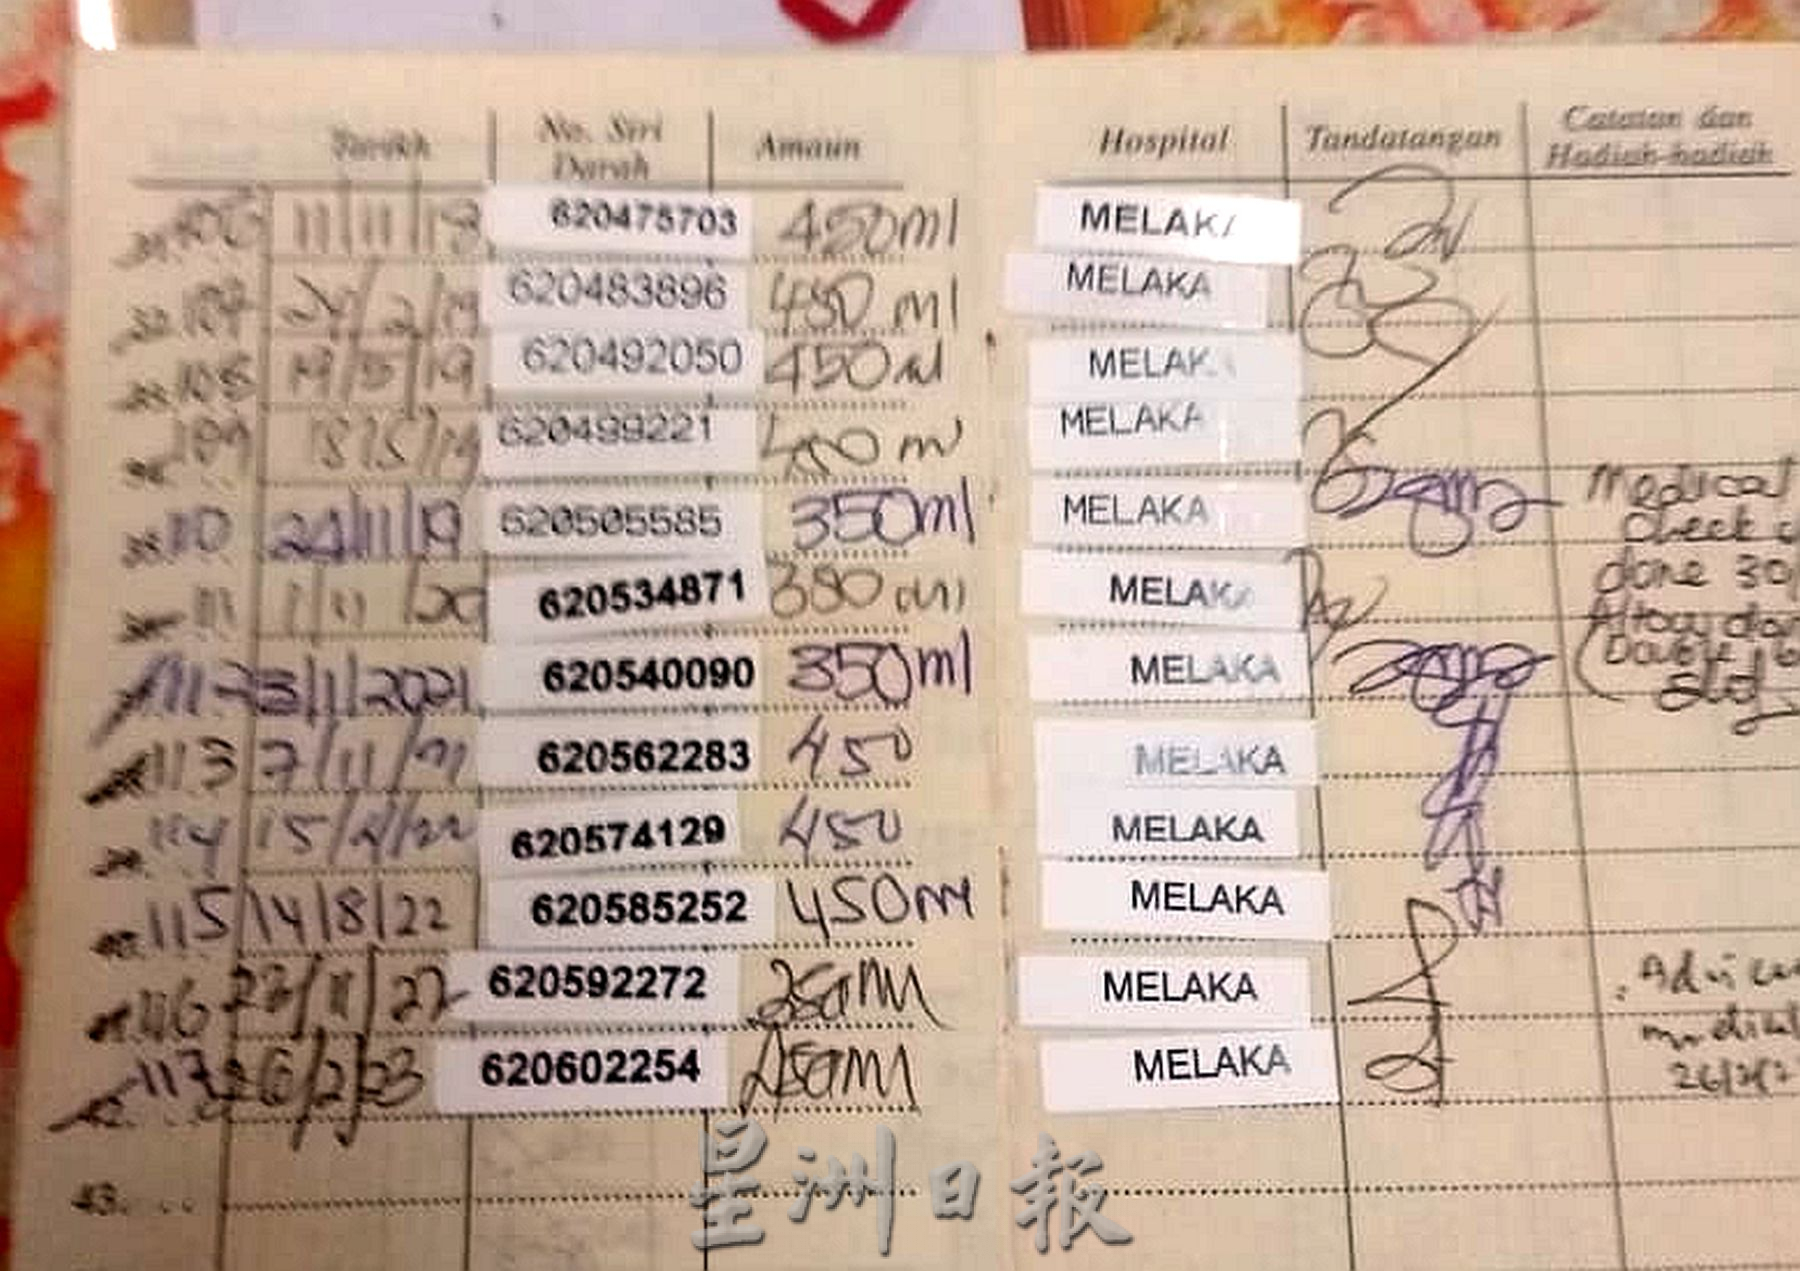 Tarikh No. Siri Darah Amaun Hospital Tandatangan Catatan dan Hadiah-hadiah
11/11/18 620475703 450ml MELAKA
24/2/19 620483896 450 ml MELAKA
108 19/5/19 620492050 450ml MELAK
109 620499221 450 ml MELAKA
110 24/11/19 620505585 350ml MELAKA Medical
check
111 1/11/20 620534871 350 ml MELAKA done 30/
Allow
112 3/1/2021 620540090 350ml MELAKA (Double
old
113 7/11/21 620562283 450 MELAKA
114 15/2/22 620574129 450 MELAKA
115 14/8/22 620585252 450ml MELAKA
116 22/11/22 620592272 MELAKA
117 26/2/23 620602254 450ml MELAKA medical
26/2/2
43.
星洲日报